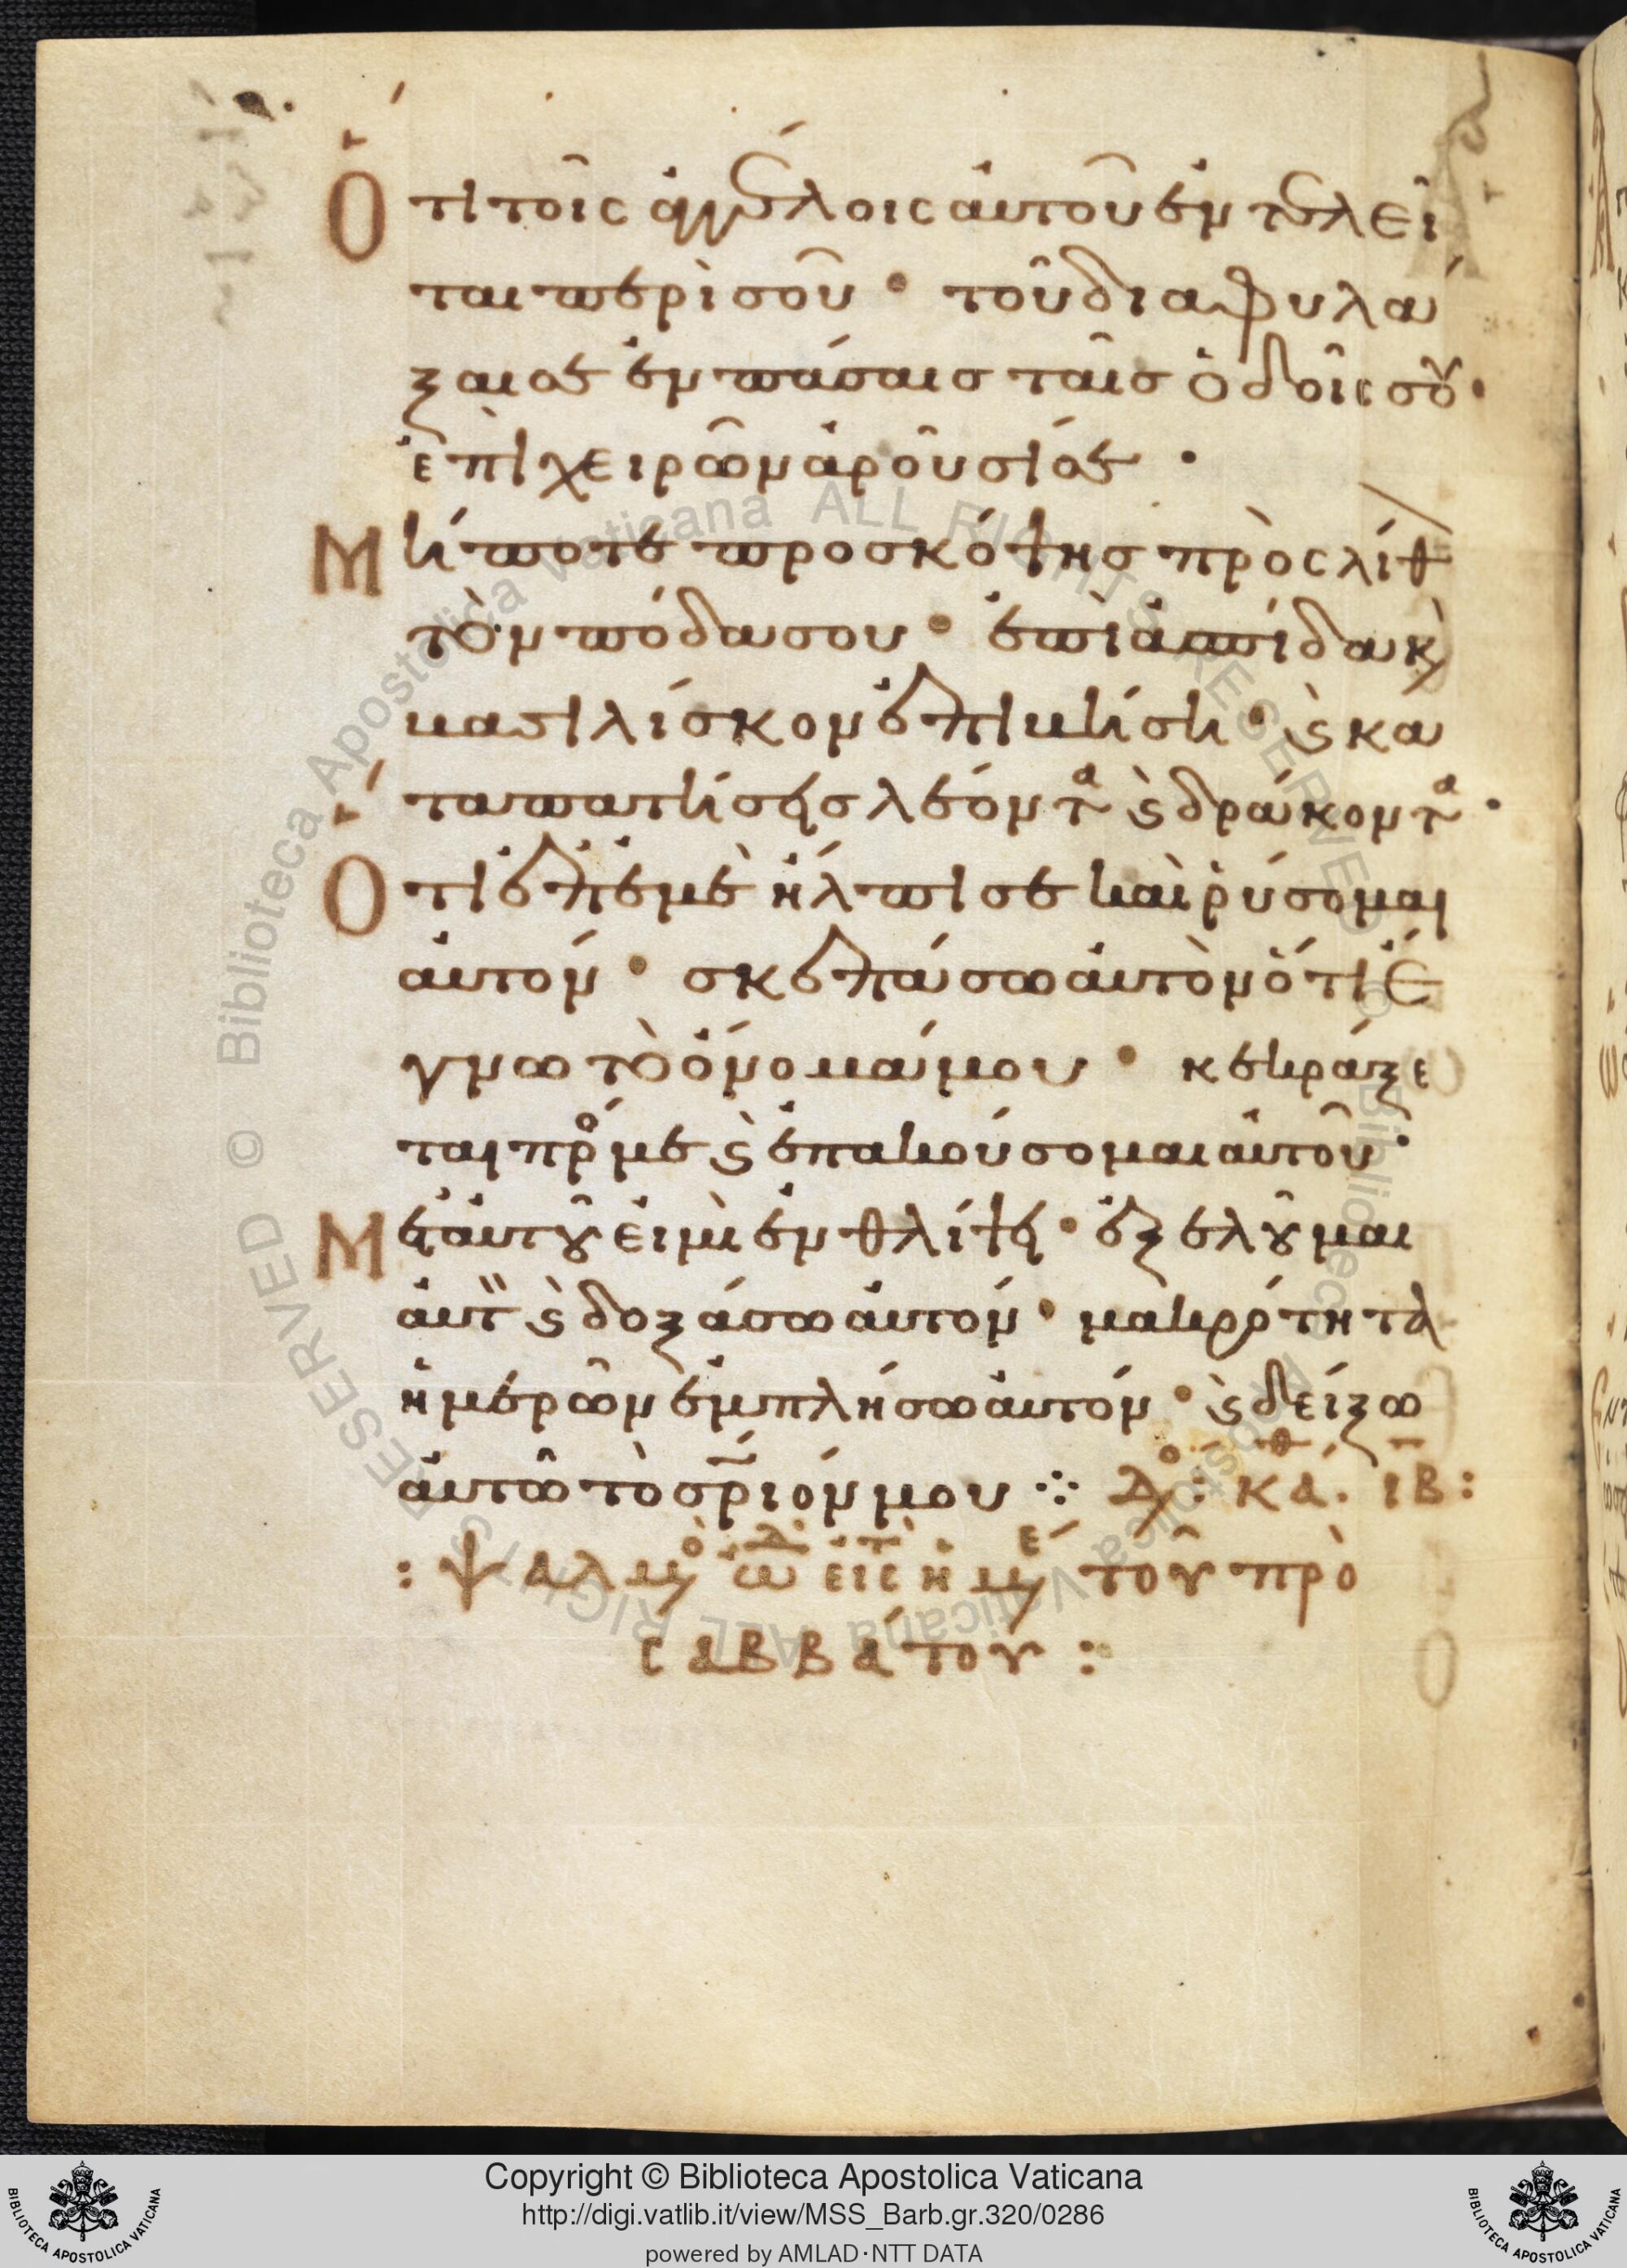 Ὅτι τοῖς ἀγγέλοις αὐτοῦ ἐντελεῖ
ται περὶ σοῦ· τοῦ διαφυλά
ξαι σε ἐν πάσαις ταῖς ὁδοῖς σου·
ἐπὶ χειρῶν ἀροῦσί σε·
Μήποτε προσκόψης πρὸς λίθ
τὸν πόδα σου· ἐπὶ ἀσπίδα κ
βασιλίσκον ἐπιβήση· ϛ κα
ταπατήσεις λέοντα ϛ δράκοντα·
Ὅτι ἐπ' ἐμὲ ἤλπισε καὶ ῥύσομαι
αὐτόν· σκεπάσω αὐτὸν ὅτι ἔ
γνω τὸ ὄνομά μου· κεκράξε
ται πρός με ϛ ἐπακούσομαι αὐτοῦ·
Μετ' αὐτοῦ εἰμι ἐν θλίψει· ἐξελοῦμαι
αὐτ ϛ δοξάσω αὐτόν· μακρότητα
ἡμερῶν ἐμπλήσω αὐτόν· ϛ δείξω
αὐτῶ τὸ σριόν μου ⁘ ΙΒ:
: ψαλμὸ ὠδ εἰς τ ἡμέ τοῦ προ
σαββάτου :
Copyright © Biblioteca Apostolica Vaticana
http://digi.vatlib.it/view/MSS_Barb.gr.320/0286
powered by AMLAD·NTT DATA
BIBLIOTECA APOSTOLICA VATICANA
BIBLIOTECA APOSTOLICA VATICANA